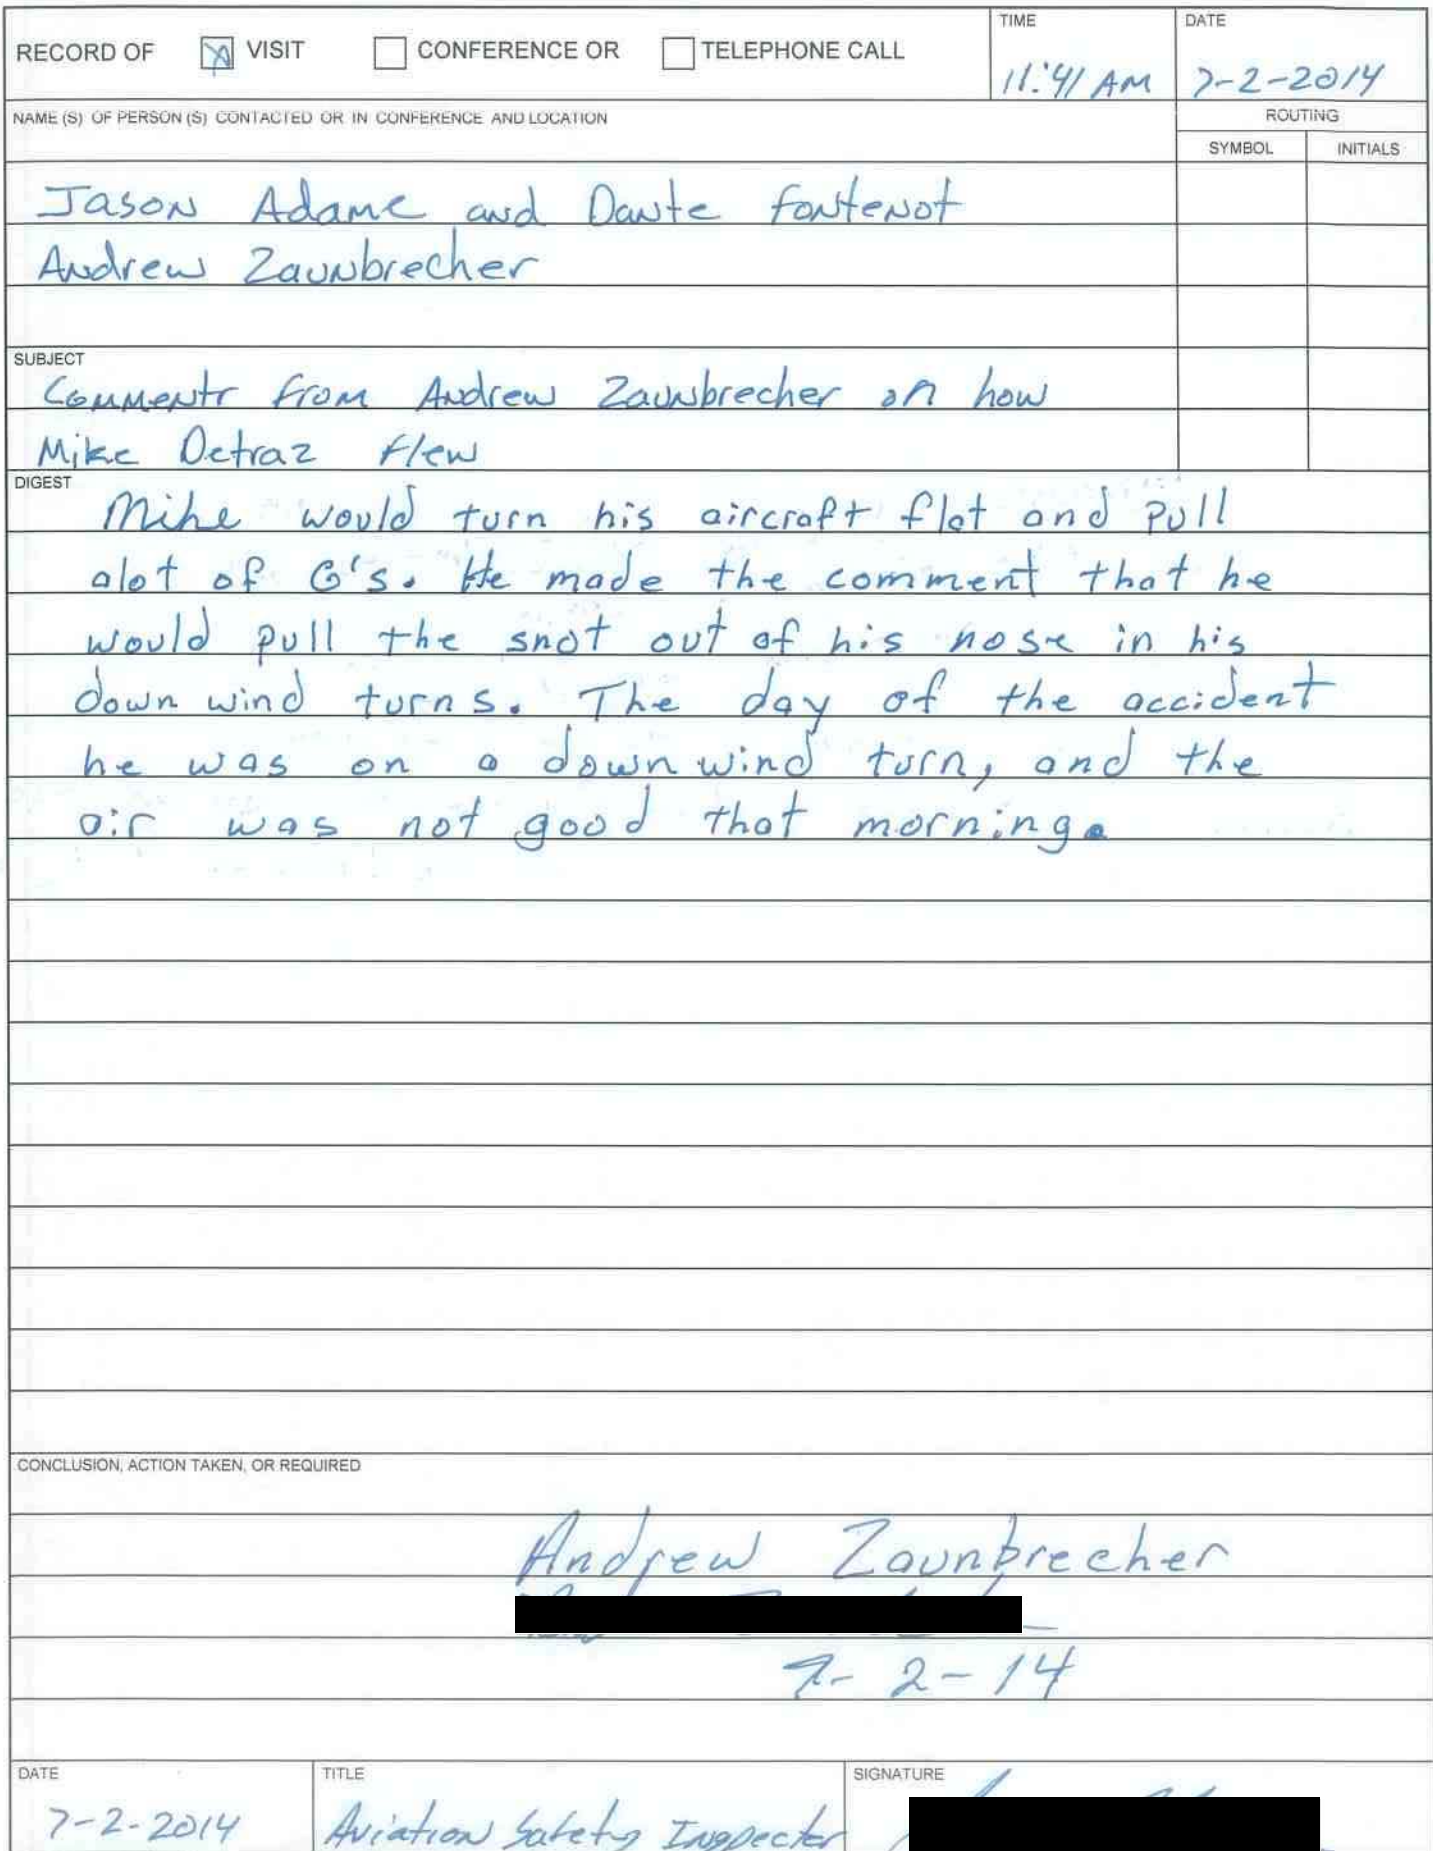 RECORD OF VISIT CONFERENCE OR TELEPHONE CALL
TIME
11:41 AM
DATE
7-2-2014
NAME (S) OF PERSON (S) CONTACTED OR IN CONFERENCE AND LOCATION
ROUTING
SYMBOL INITIALS
Jason Adame and Dante Fontenot
Andrew Zaunbrecher
SUBJECT
Comments from Andrew Zaunbrecher on how
Mike Detraz flew
DIGEST
Mike would turn his aircraft flat and pull
alot of G's. He made the comment that he
would pull the snot out of his nose in his
down wind turns. The day of the accident
he was on a down wind turn, and the
air was not good that morning.
CONCLUSION, ACTION TAKEN, OR REQUIRED
Andrew Zaunbrecher
7-2-14
DATE
7-2-2014
TITLE
Aviation Safety Inspector
SIGNATURE